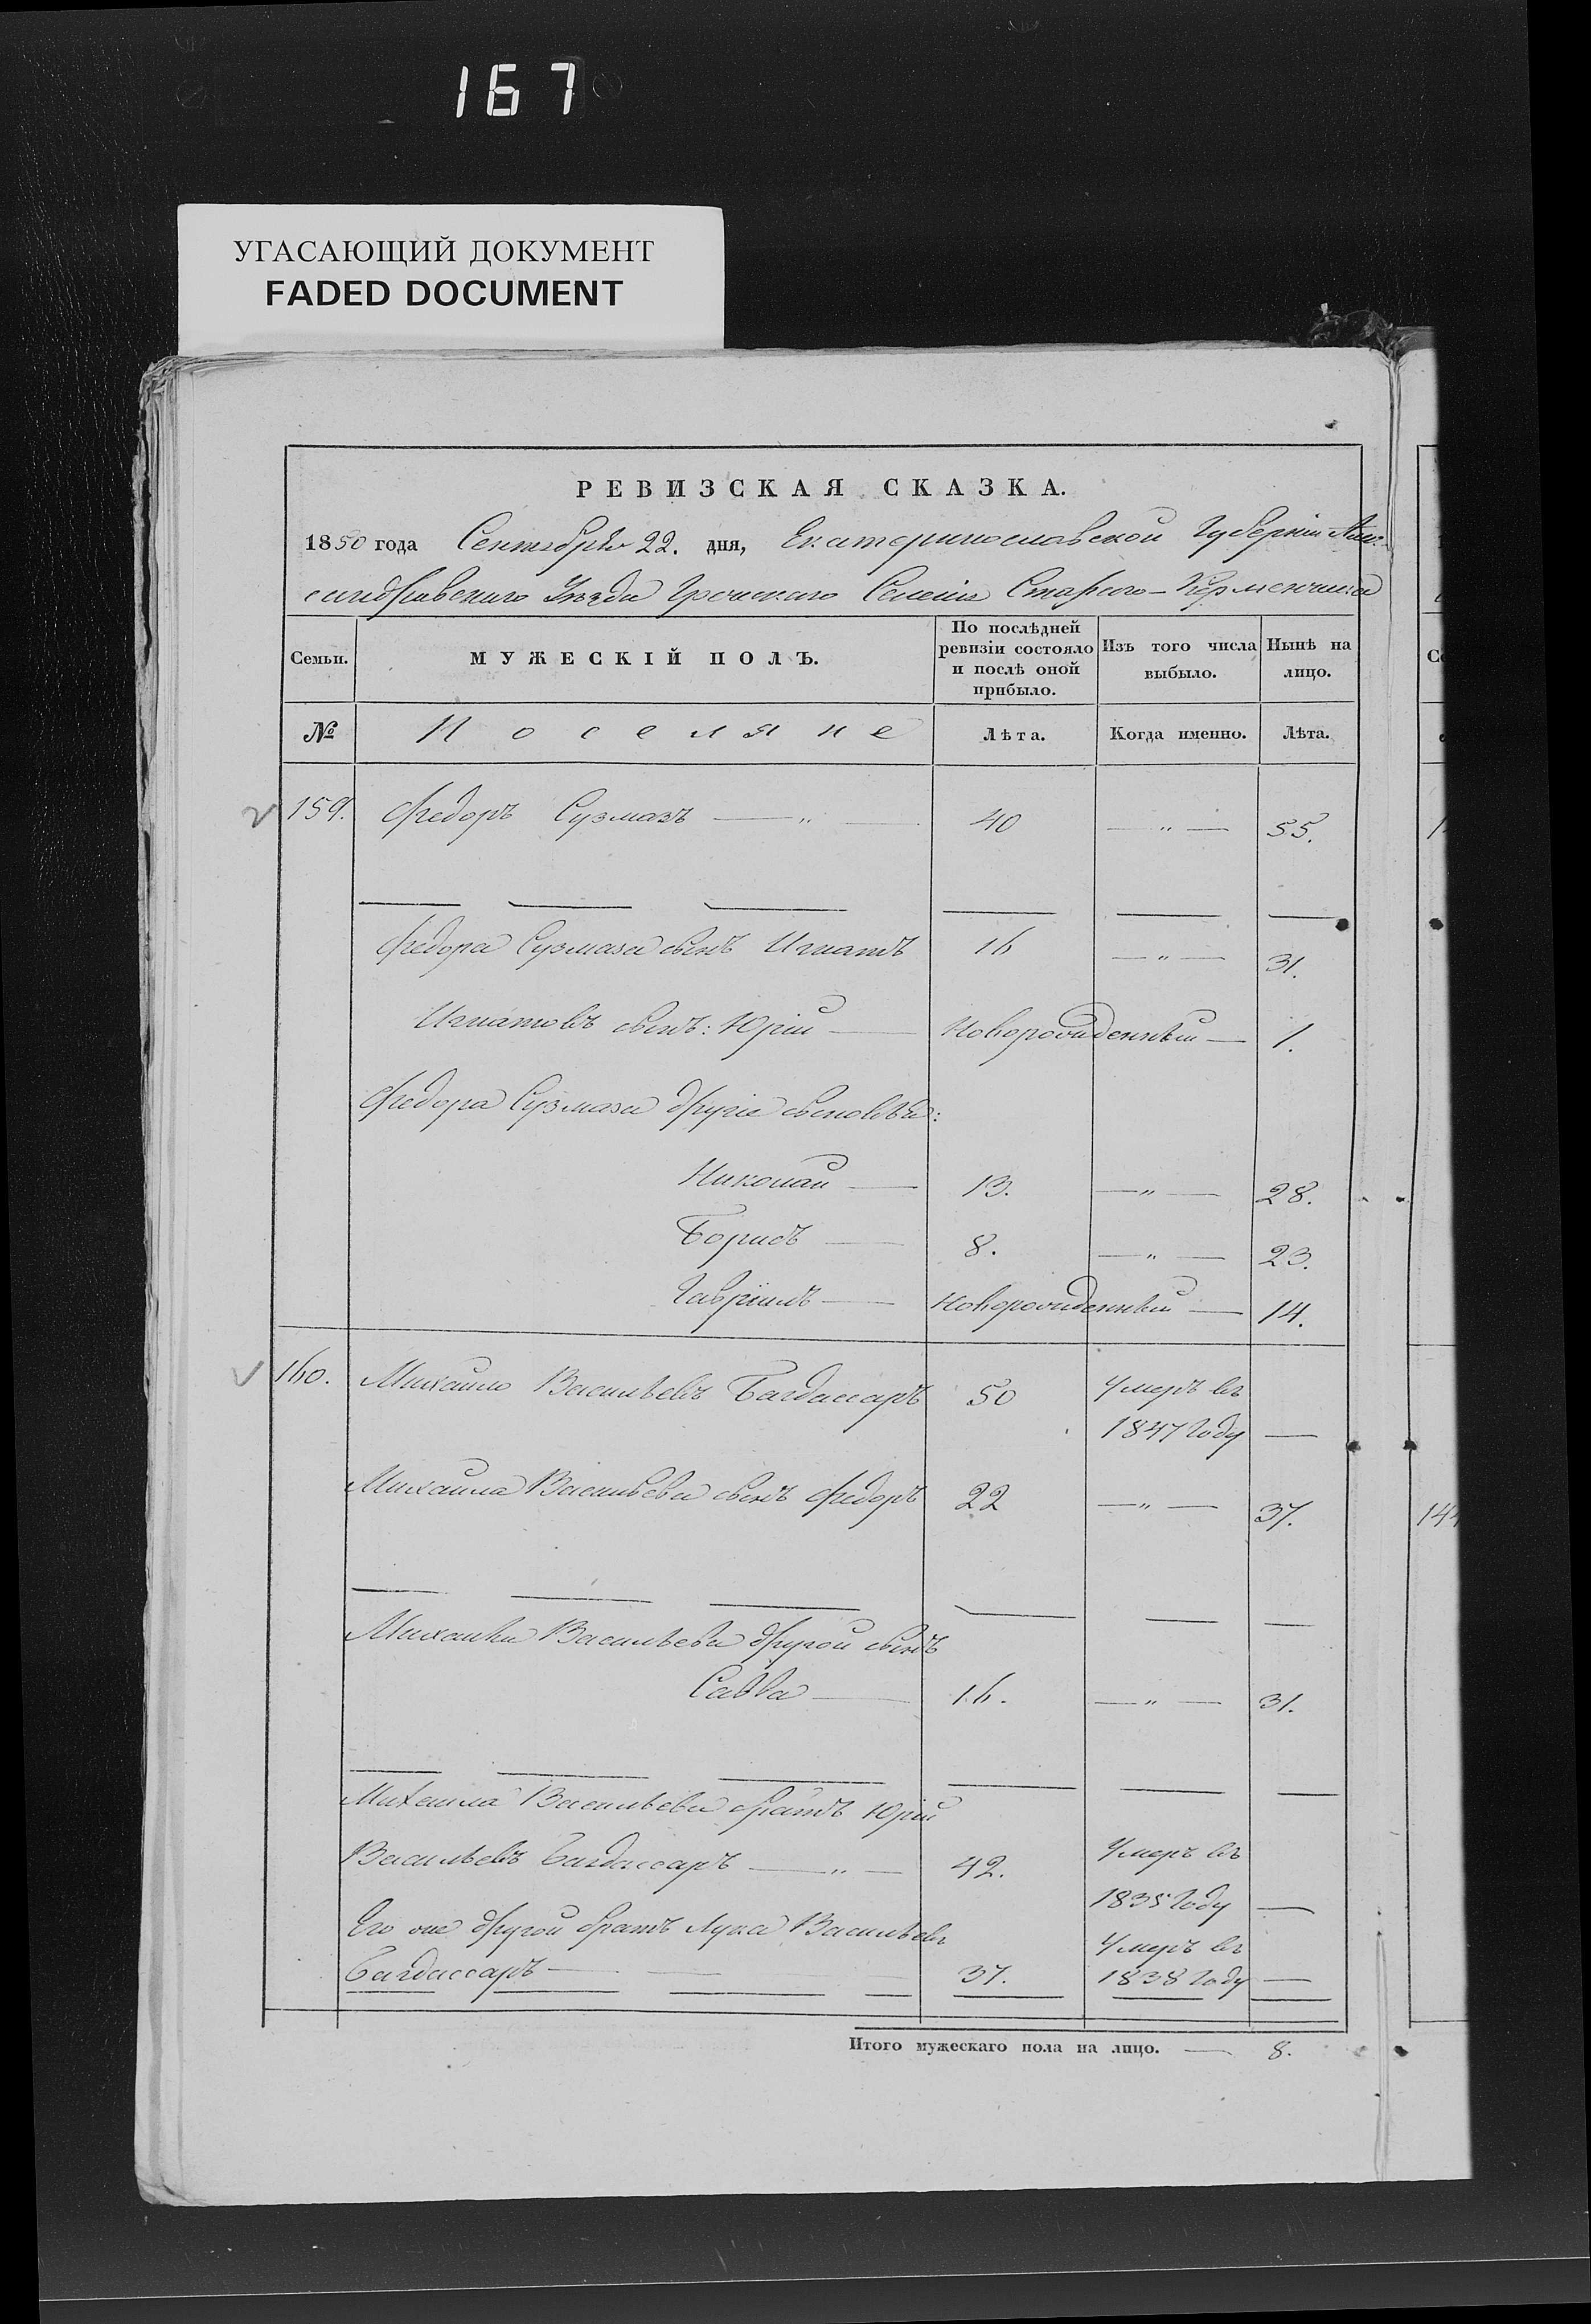 167
УГАСАЮЩИЙ ДОКУМЕНТ
FADED DOCUMENT
РЕВИЗСКАЯ СКАЗКА.
1850 года Сентября 22. дня, Екатеринославской Губерніи Алек-
сандровскаго Уѣзда Греческаго Селенія Стараго-Керменчика
Семьи. МУЖЕСКІЙ ПОЛЪ. По послѣдней ревизіи состояло и послѣ оной прибыло. Изъ того числа выбыло. Нынѣ на лицо.
№ Поселяне Лѣта. Когда именно. Лѣта.
159. Федоръ Сузмазъ — „ — 40 — „ — 55.
Федора Сузмаза сынъ Игнатъ 16 — „ — 31.
Игнатовъ сынъ: Юрій — Новорожденный — 1.
Федора Сузмаза другіе сыновья:
Николай — 13. — „ — 28.
Борисъ — 8. — „ — 23.
Гавріилъ — Новорожденный — 14.
160. Михайло Васильевъ Багдассаръ 50 Умеръ въ
1847 Году —
Михайла Васильева сынъ Федоръ 22 — „ — 37.
Михайла Васильева другой сынъ
Савва — 16. — „ — 31.
Михайла Васильева братъ Юрій
Васильевъ Багдассаръ — „ — 42. Умеръ въ
1835 Году —
Его же другой братъ Лука Васильевъ
Багдассаръ — 37. Умеръ въ
1838 Году —
Итого мужескаго пола на лицо. — 8.